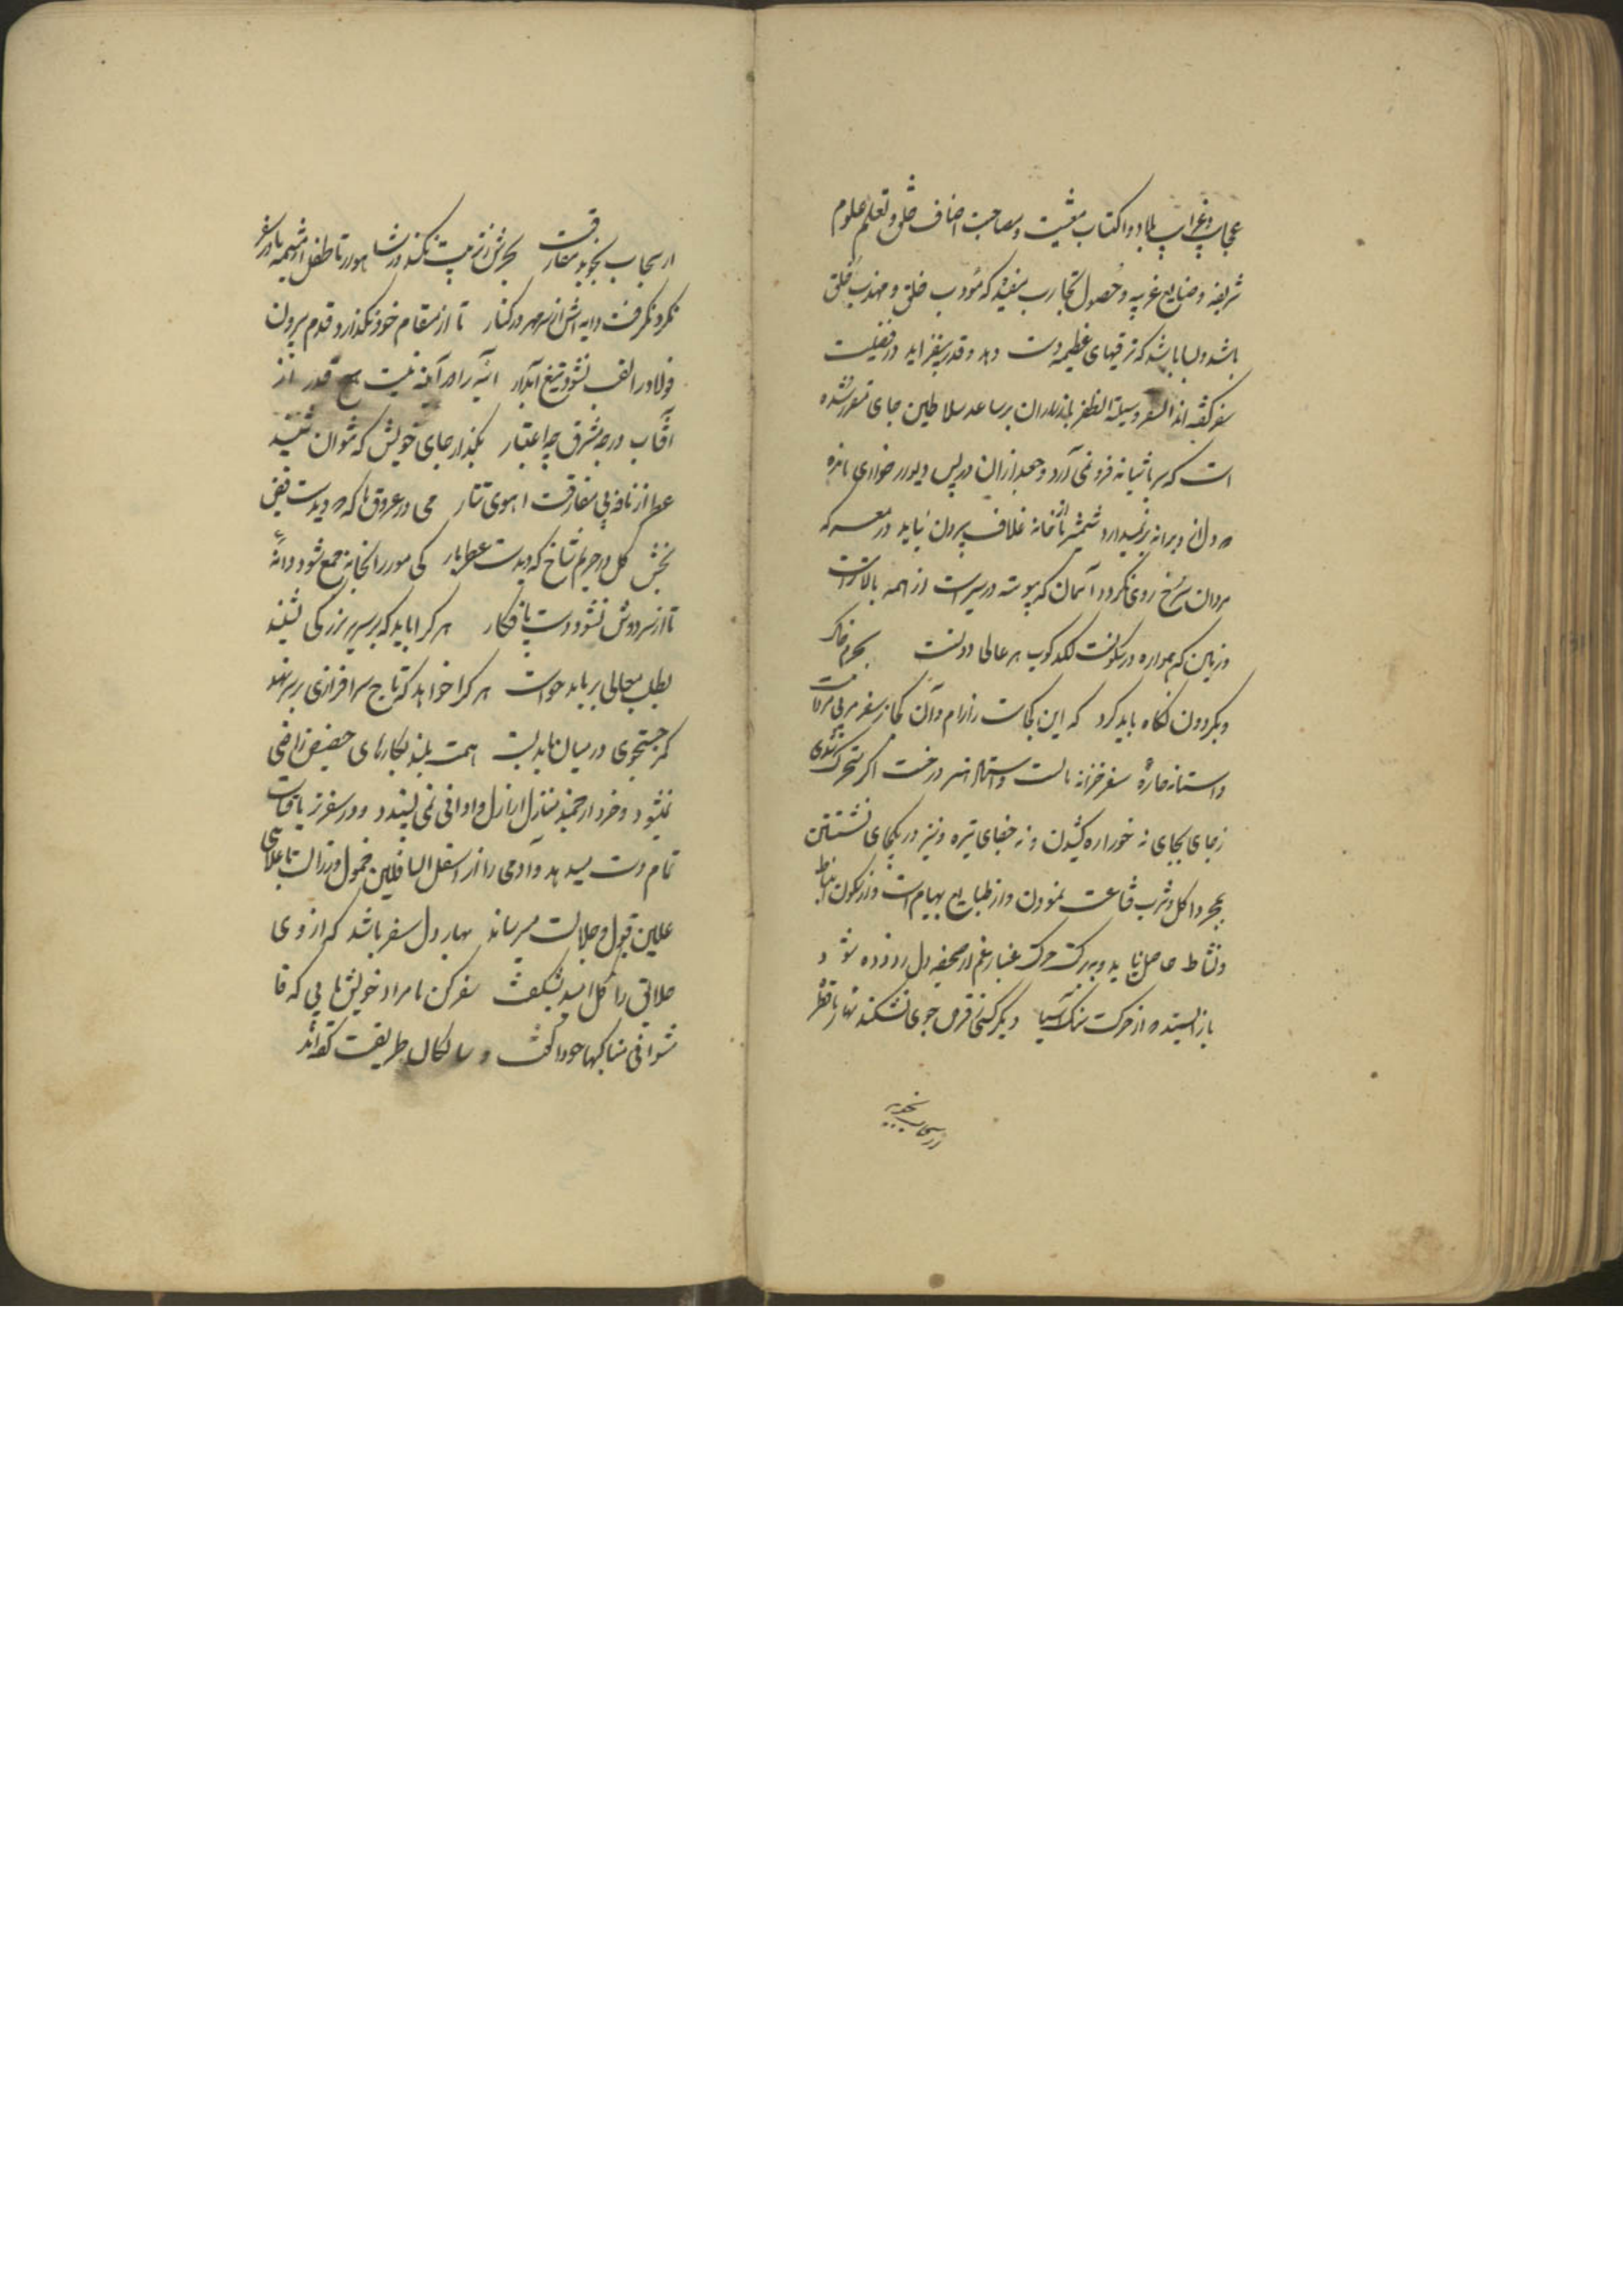 عجایب و غرایب بلاد و اکتساب معیشت و مصاحبت اصناف خلق و تعلم علوم
شریفه و صنایع غریبه و حصول تجارب مفیده که مودب خلق و مهذب خلق
باشد و بسا باشد که ترقیهای عظیمه دست دهد و قدر بیفزاید در فضیلت
سفر گفته اند السفر وسیلة الظفر بازداران بر ساعد سلاطین جای مقرر شده
است که سر باشیانه فرو نمی آرد و جغد ازان در پس دیوار خواری مانده
که دل از ویرانه بر نمیدارد شمشیر تا از خانه غلاف بیرون نیاید در معرکه
مردان سرخ روی نگردد آسمان که پیوسته در سیرست از همه بالاترست
و زمین که همواره در سکونت لگدکوب هر عالی و دونست بجرم خاک
و بگردون نگاه باید کرد که این کجاست ز آرام و آن کجا ز سفر سفر مربی مردست
و آستانه جاه سفر خزانه مالست و استاد هنر درخت اگر متحرک شدی
ز جای بجای نه جور اره کشیدی و نه جفای تبر و نیز در یکجای نشستن
بمجرد اکل و شرب قناعت نمودن از طبایع بهایم است و از سکون انبساط
و نشاط حاصل نیاید و ببرکت حرکت غبار غم از صحیفه دل زدوده شود
باز ایستد از حرکت سنک آسیا دیگر کسی قرص جوی نشکند نهار تا قطر
از سحاب نجوید
از سحاب نجوید مفارقت بحرش ز تربیت نکند در شاهوار تا طفل از مشیمه مادر سفر
نکرد نگرفت دایه اش از سر مهر در کنار تا از مقام خود نگذارد قدم برون
فولاد را لقب نشود تیغ آبدار آئینه را در آینه نیست هیچ قدر از
آفتاب در جه مشرق چه اعتبار بگذار جای خویش که نتوان شنید
عطر از نافه بی مفارقت آهوی تتار می در عروق تاک که دیدست فیض
بخش گل در حریم شاخ که دیدست عطربار کی مور را بخانه جمع شود دانه
تا از سر دوش نشود دست پا فکار هر کرا باید که بر سریر بزرگی نشیند
بطلب معالی بر باید خواست هر کرا خواهد که تاج سرافرازی بر سر نهد
کمر جستجوی در میان باید بست همت بلند بکارهای حضیض راضی
نشود و خرد ارجمند منازل اراذل و ادانی نمی پسندد و در سفر ترقیات
تمام دست میدهد و آدمی را از اسفل السافلین خمول و رذالت باعلای
علیین قبول و جلالت میرساند بهار دل سفر باشد که از وی
خلایق را گل امید بشگفت سفر کن تا مراد خویش یابی که
فامشوا فی مناکبها خدا گفت و سالکان طریقت گفته اند